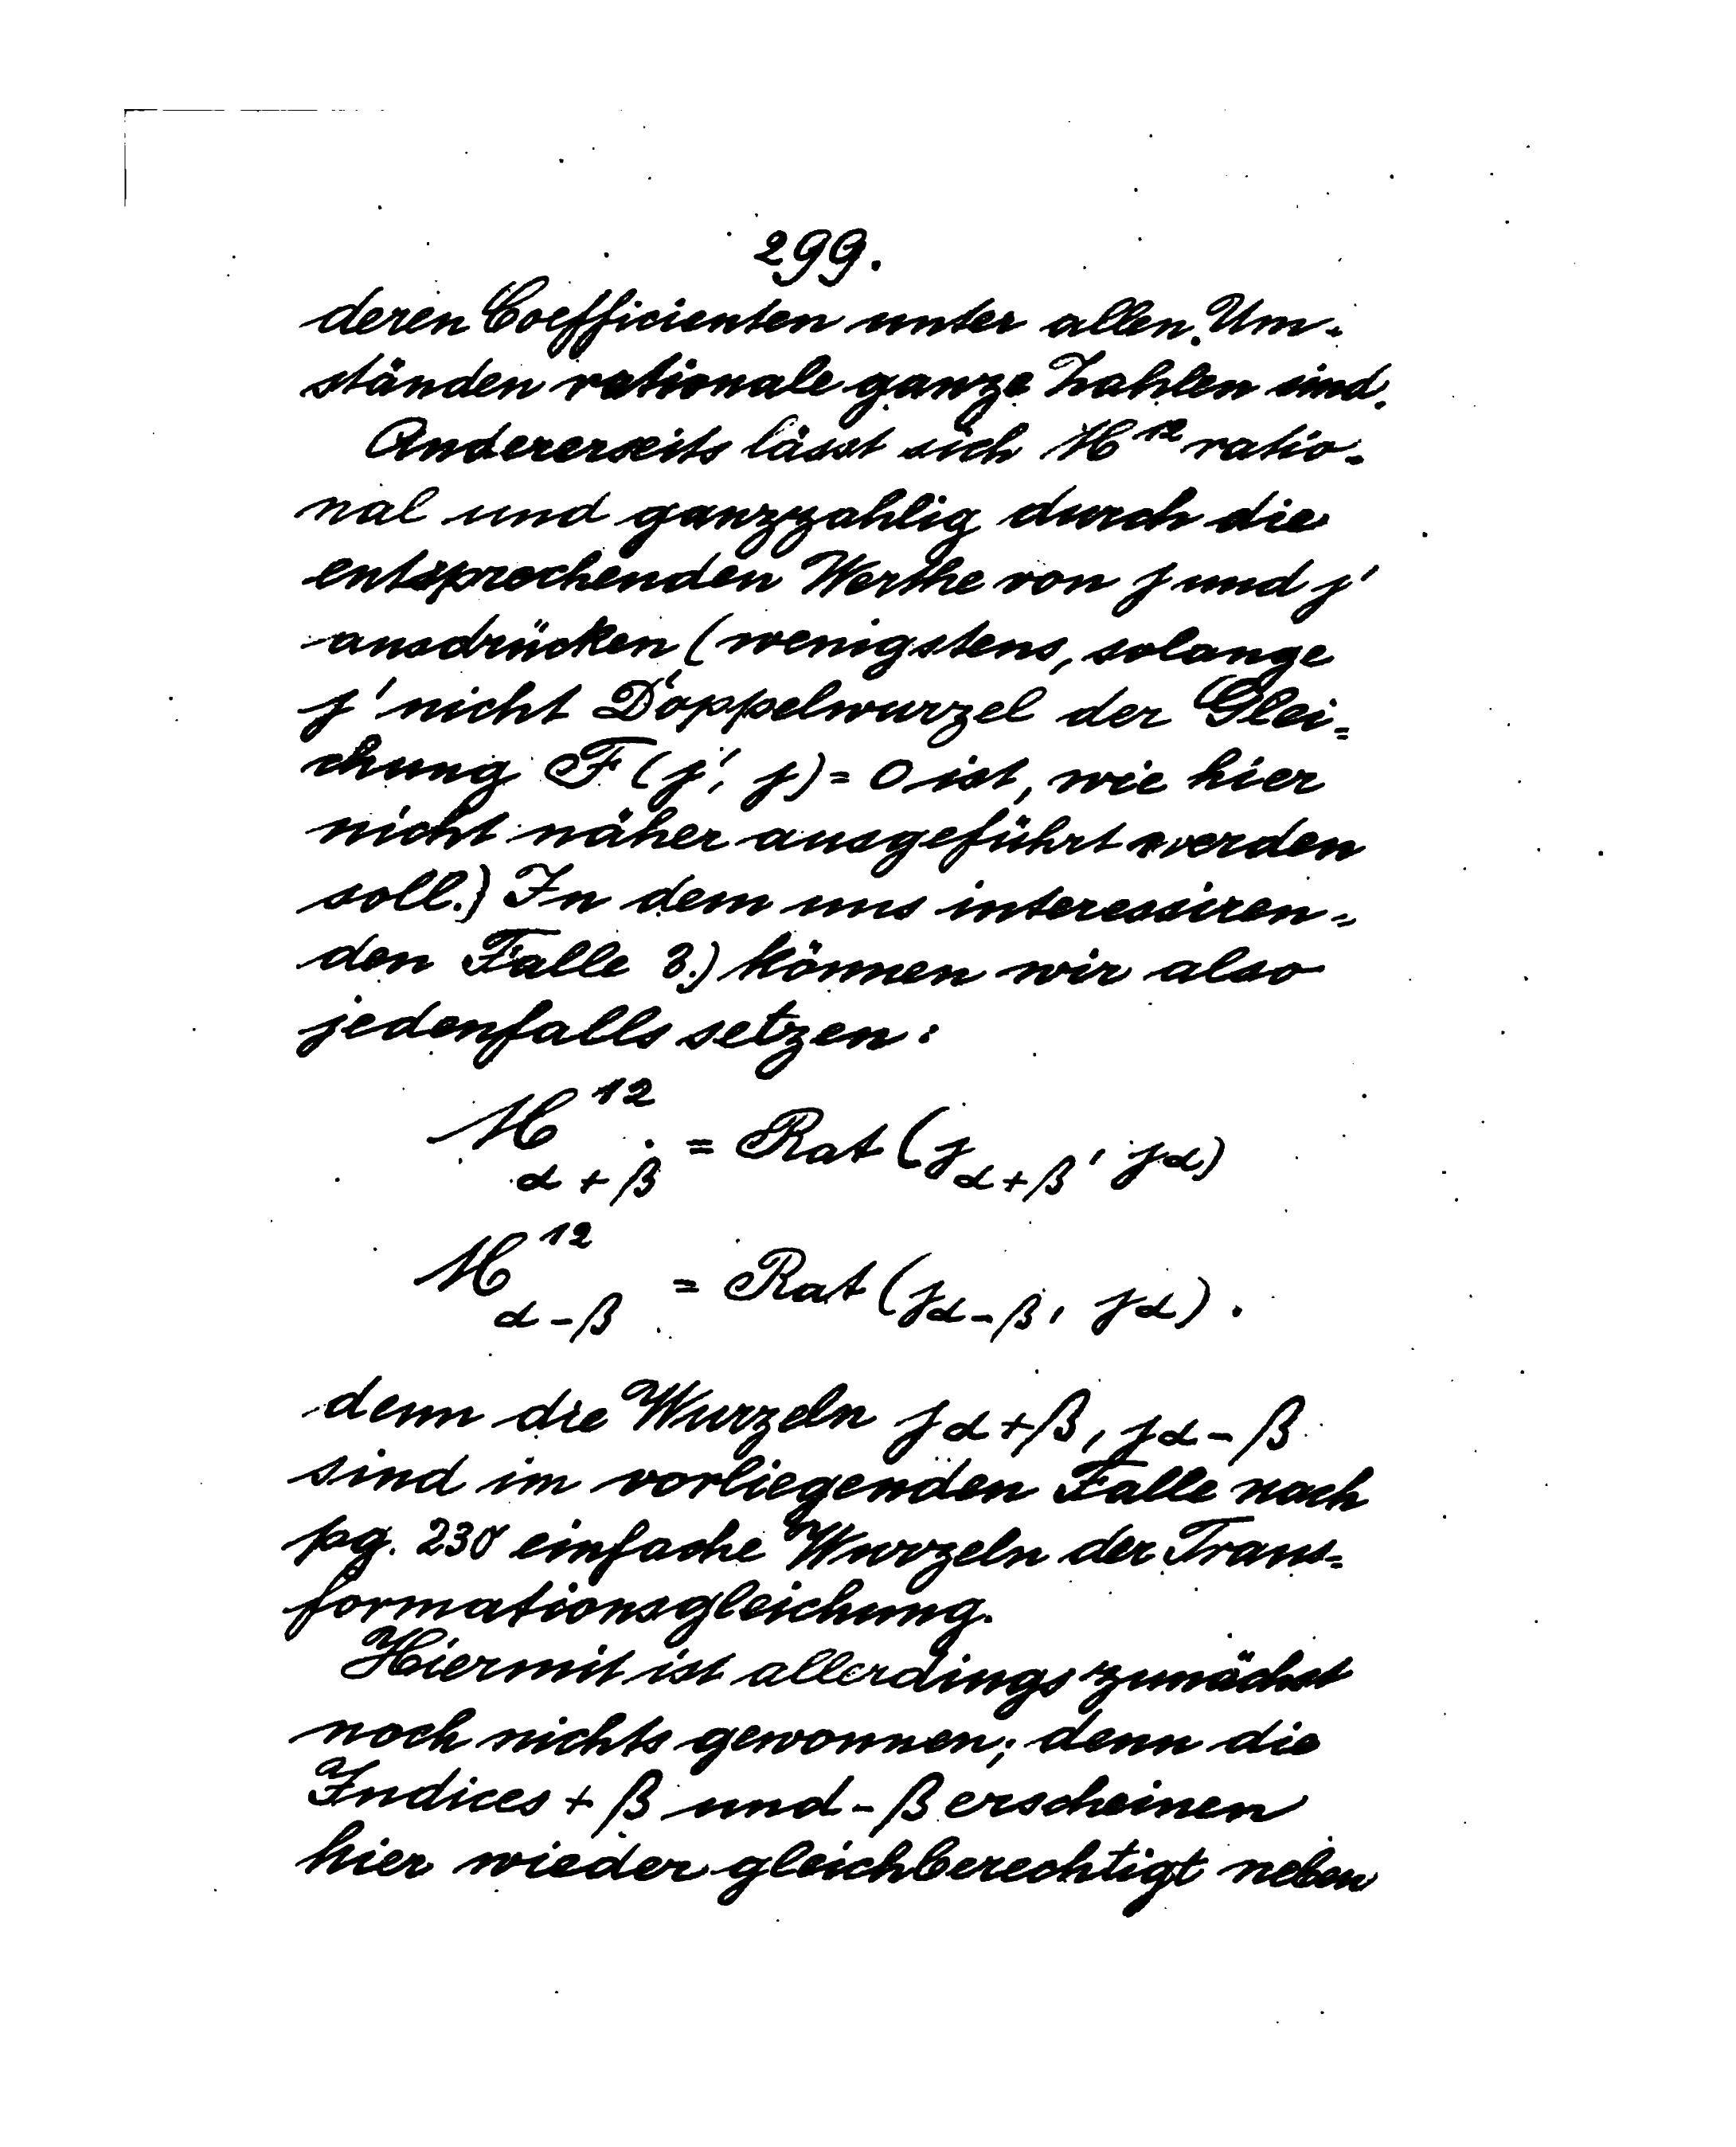 299.
deren Coefficienten unter allen Um-
ständen rationale ganze Zahlen sind.
Andererseits lässt sich M¹² ratio-
nal und ganzzahlig durch die
entsprechenden Werthe von j und j'
ausdrücken (wenigstens, solange
j' nicht Doppelwurzel der Glei=
chung F(j', j) = 0 ist, wie hier
nicht näher ausgeführt werden
soll.) In dem uns interessiren=
den Falle 3.) können wir also
jedenfalls setzen:
M¹²_{α+β} = Rat (j_{α+β}, j_α)
M¹²_{α-β} = Rat (j_{α-β}, j_α).
denn die Wurzeln j_{α+β}, j_{α-β}
sind im vorliegenden Falle nach
pg. 230 einfache Wurzeln der Trans=
formationsgleichung.
Hiermit ist allerdings zunächst
noch nichts gewonnen; denn die
Indices + β und - β erscheinen
hier wieder gleichberechtigt neben